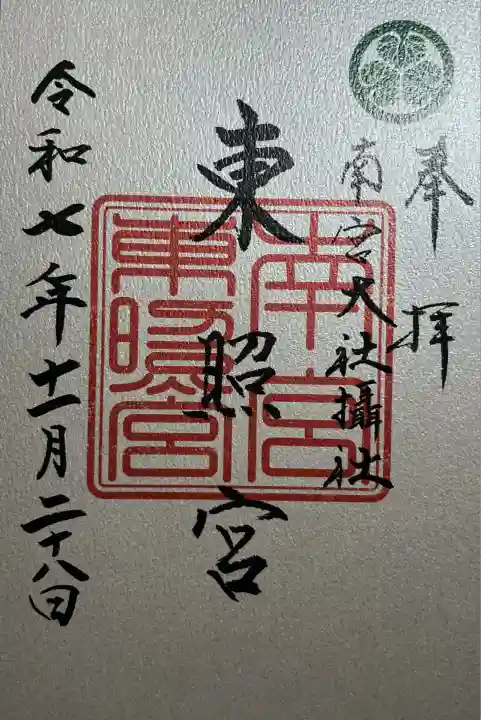 奉拝
南宮大社攝社
東照宮
南宮
東照宮
令和七年十一月二十八日